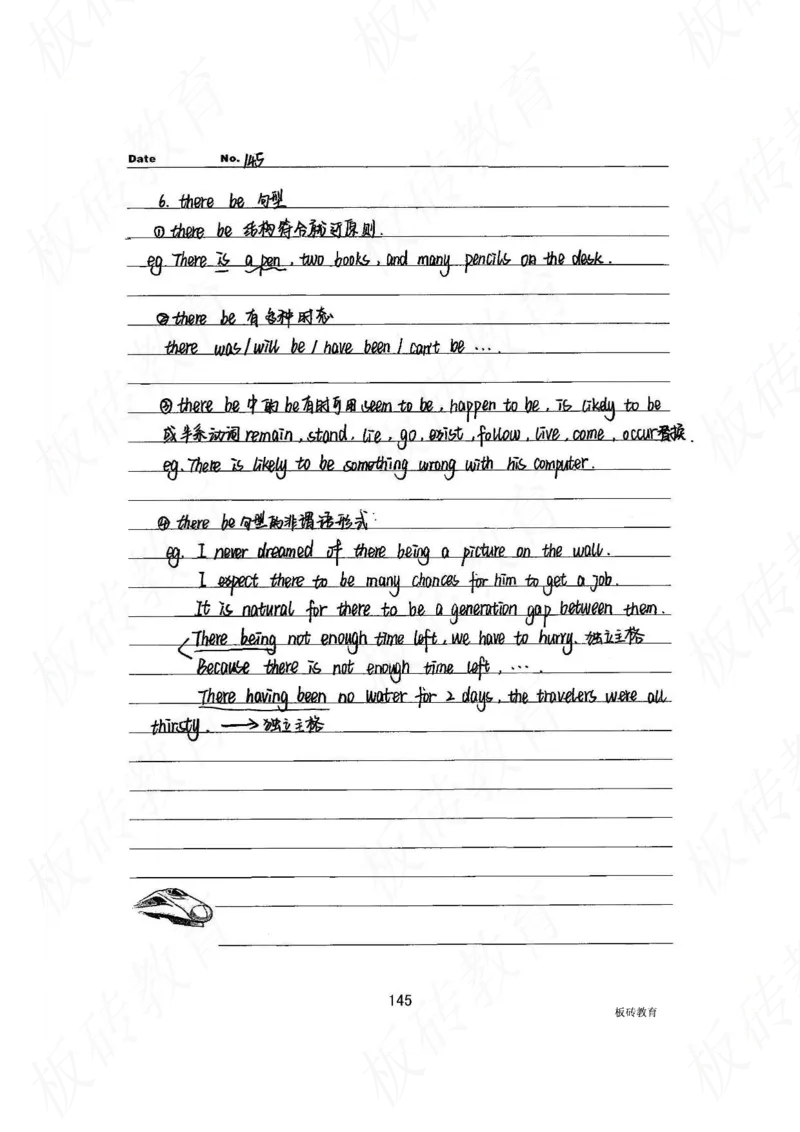 Date No. 145
6. there be 句型
① there be 结构符合就近原则.
eg. There is a pen, two books, and many pencils on the desk.
② there be 有多种时态
there was / will be / have been / can't be ….
③ there be 中的 be 有时可用 seem to be, happen to be, is likely to be
或半系动词 remain, stand, lie, go, exist, follow, live, come, occur 替换.
eg. There is likely to be something wrong with his computer.
④ there be 句型的非谓语形式:
eg. I never dreamed of there being a picture on the wall.
I expect there to be many chances for him to get a job.
It is natural for there to be a generation gap between them.
There being not enough time left, we have to hurry. 独立主格
Because there is not enough time left, ….
There having been no water for 2 days, the travelers were all
thirsty. → 独立主格
145
板砖教育